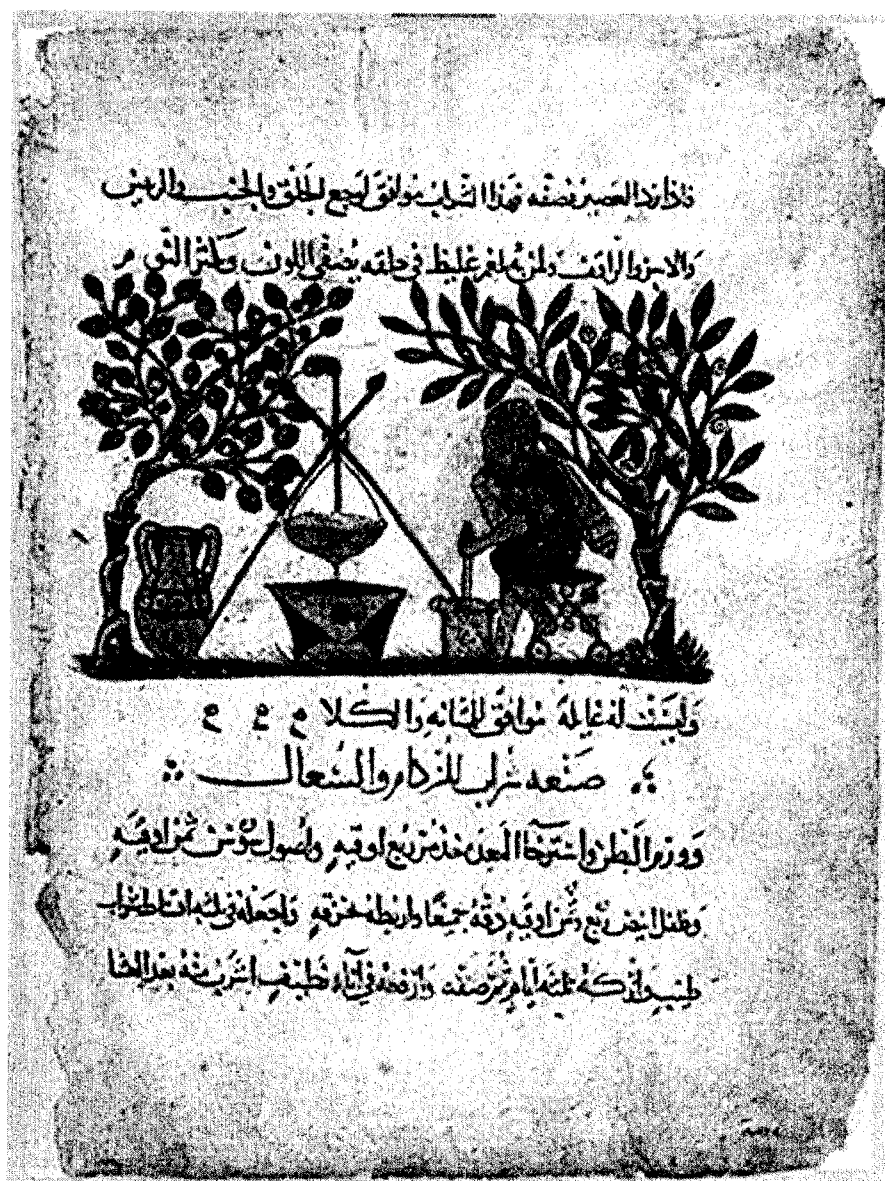 فاذا برد العصير فصفه فهذا الشراب موافق لوجع الحلق والجنب
ولمن به بلغم غليظ في حلقه يصفي اللون ويكثر النوم
وليست له غايلة موافق للمثانه والكلا
صنعه شراب للزكام والسعال
وورم البطن واسترخاا المعده خذ مر ربع اوقيه واصول سوسن ثمن اوقيه
وفلفل ابيض ربع وثمن اوقيه دقه جميعا واربطه بخرقه واجعله في ثلثه اقساط شراب
طيب واتركه ثلثه ايام ثم صفه وارفعه في اناء نظيف اشرب منه بعد العشا